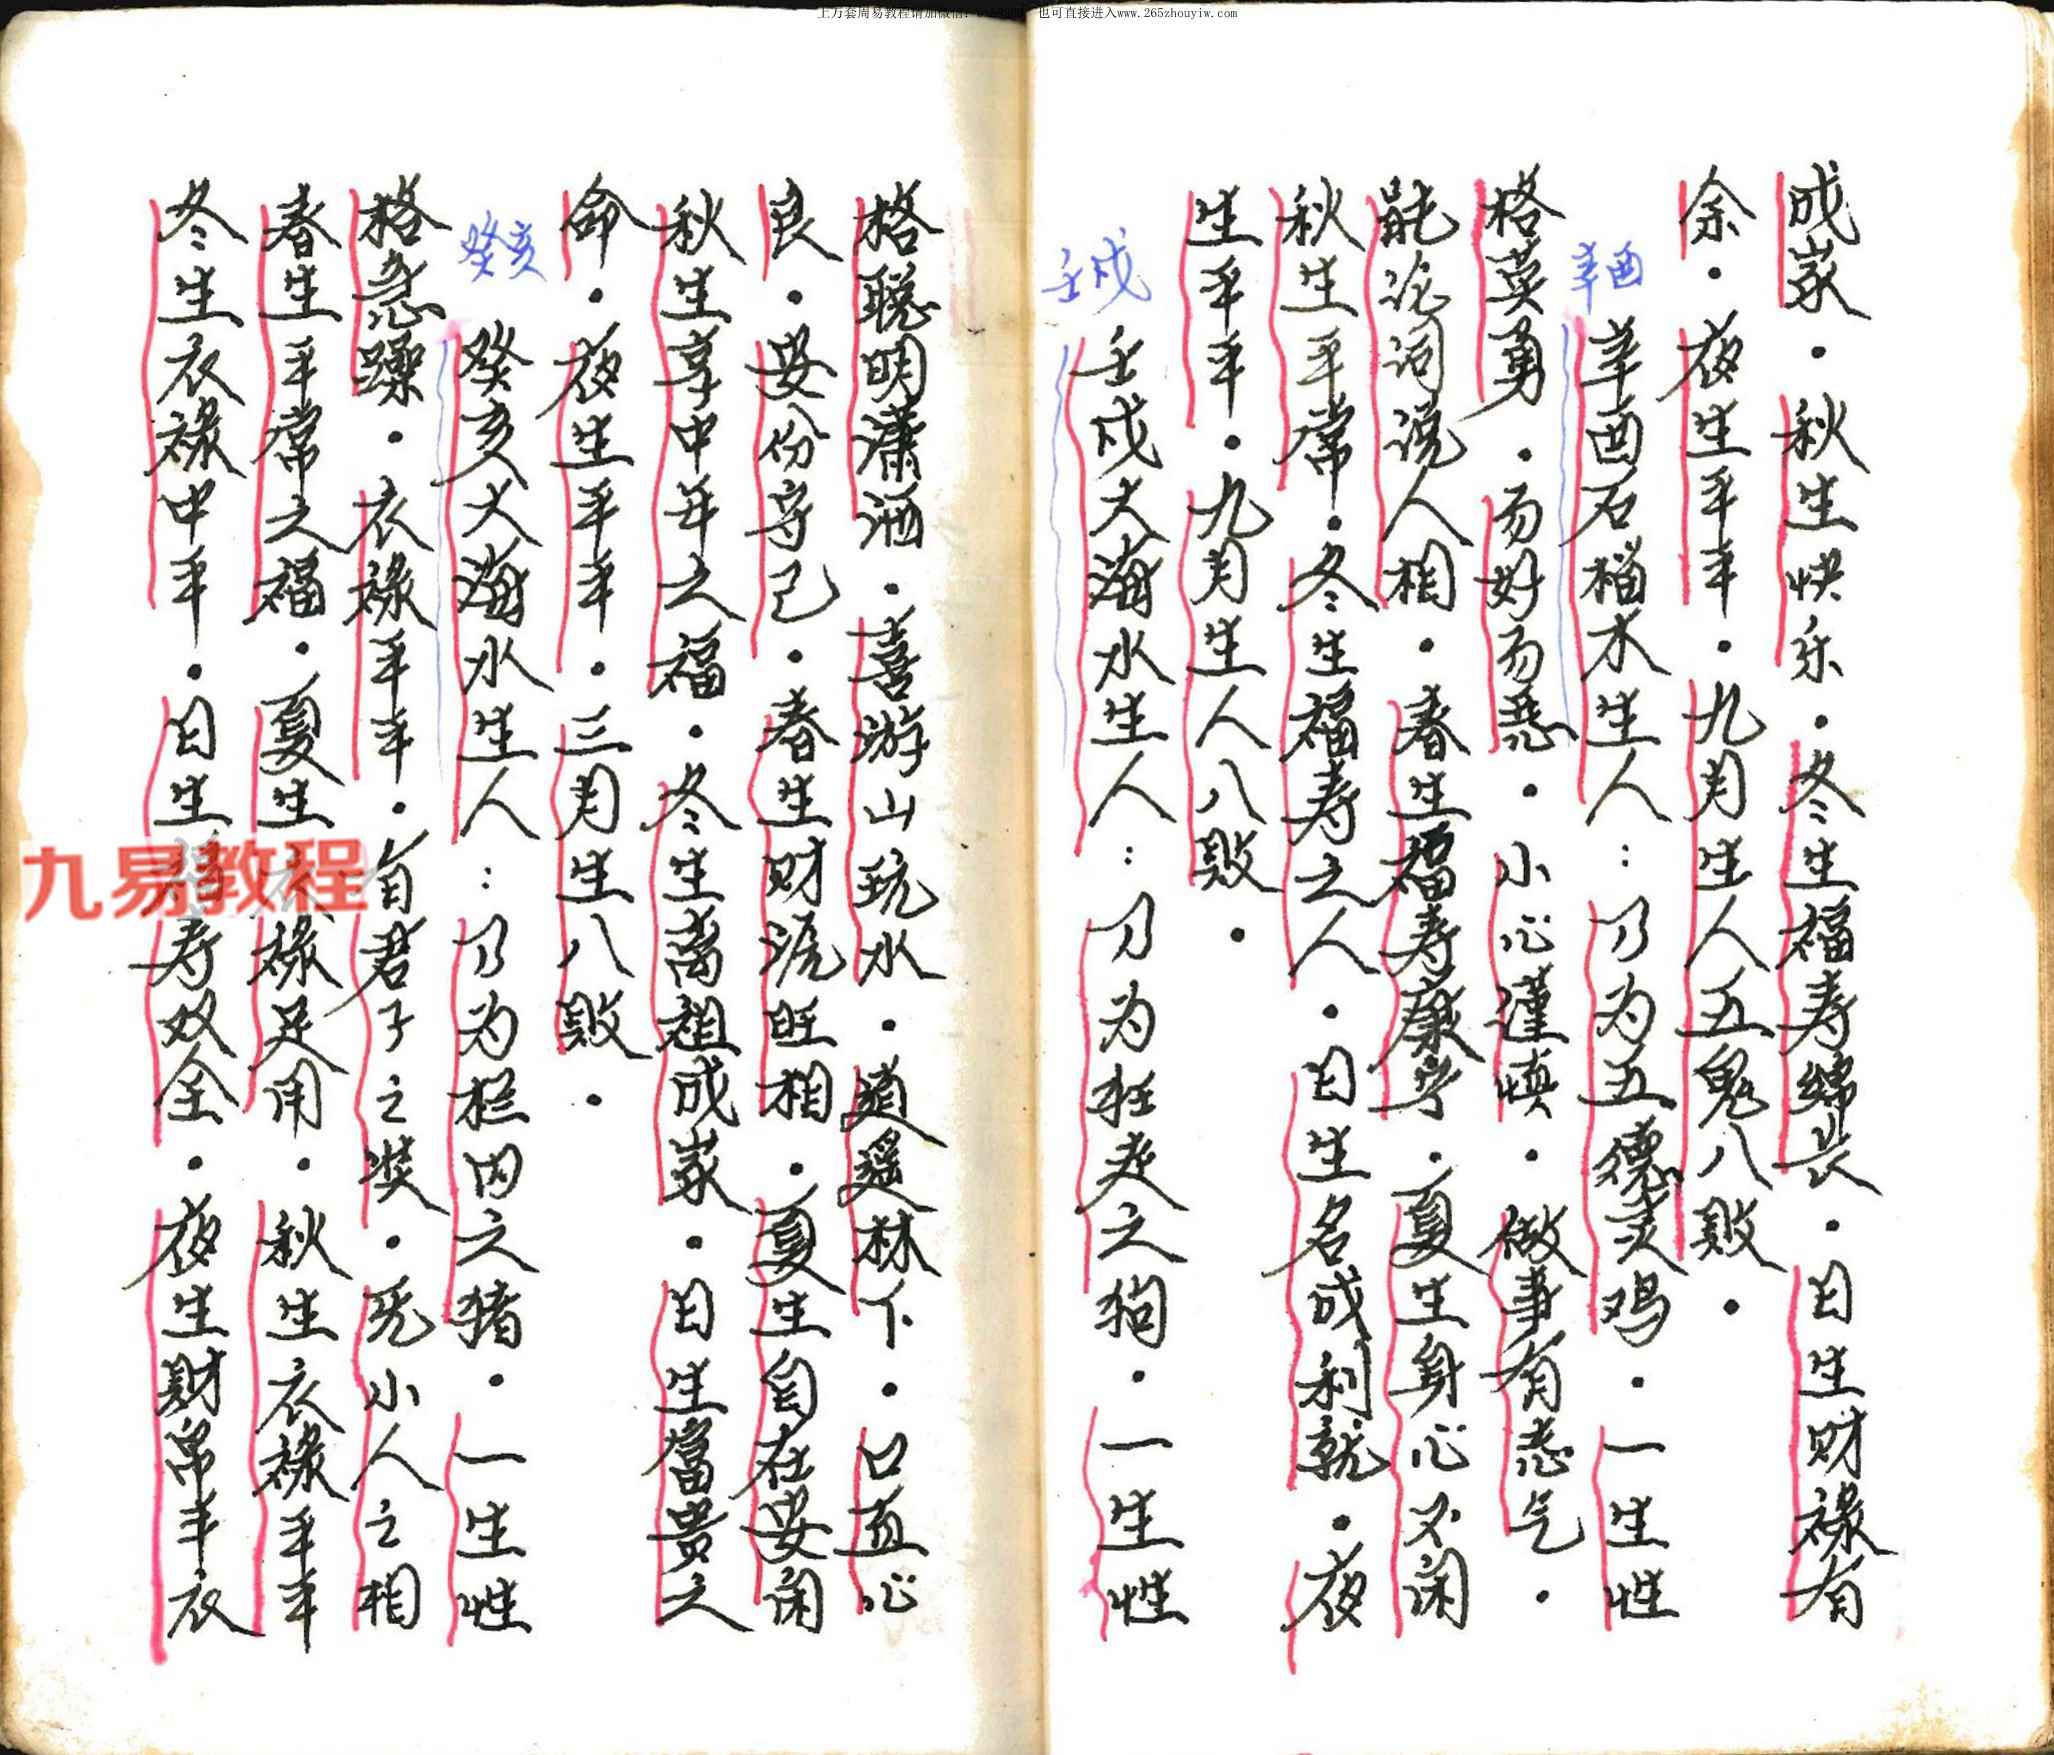 上万套周易教程请加微信: 也可直接进入www.265zhouyiw.com
成家.秋生快乐.冬生福寿绵长.日生财禄有
余.夜生平平.九月生人五鬼八败.
辛酉
辛酉石榴木生人:乃为五德灵鸡.一生性
格英勇.而好而恶.小心谨慎.做事有志气.
能论词说人相.春生福寿康宁.夏生身心不闲
秋生平常.冬生福寿之人.日生名成利就.夜
生平平.九月生人八败.
壬戌
壬戌大海水生人:乃为狂走之狗.一生性
格聪明潇洒.喜游山玩水.逍遥林下.口直心
良.安份守己.春生财源旺相.夏生自在安闲
秋生享中年之福.冬生离祖成家.日生富贵之
命.夜生平平.三月生八败.
癸亥
癸亥大海水生人:乃为栏内之猪.一生性
格急躁.衣禄平平.有君子之奖.无小人之相
春生平常之福.夏生衣禄足用.秋生衣禄平平
冬生衣禄中平.日生福寿双全.夜生财帛丰衣
九易教程